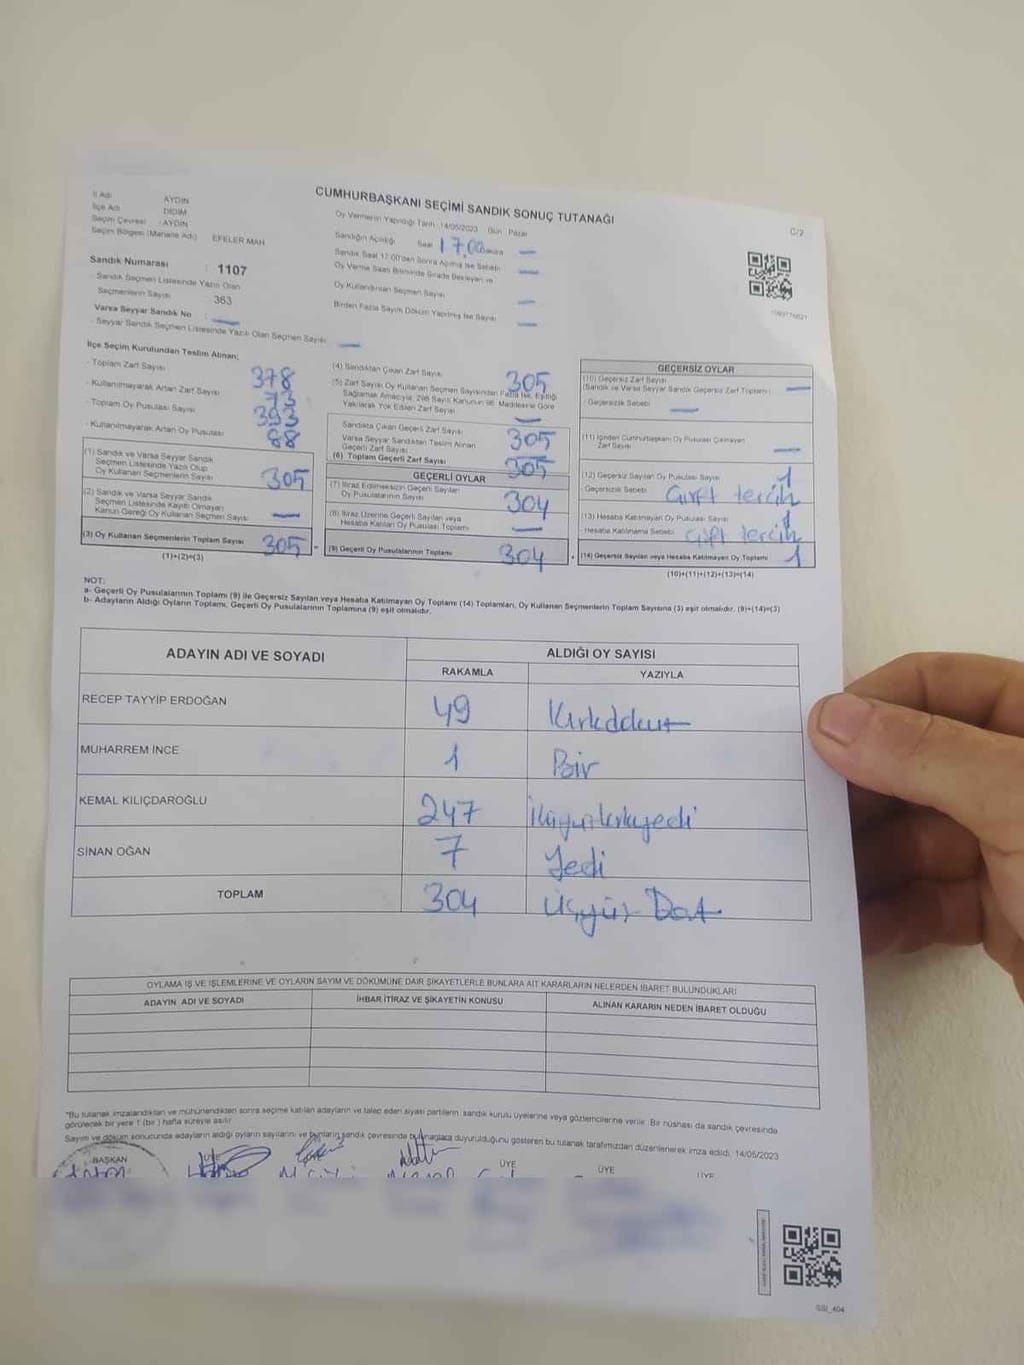 CUMHURBAŞKANI SEÇİMİ SANDIK SONUÇ TUTANAĞI
C/2
İl Adı AYDIN
İlçe Adı DİDİM
Seçim Çevresi : AYDIN
Seçim Bölgesi (Mahalle Adı) EFELER MAH
Sandık Numarası : 1107
- Sandık Seçmen Listesinde Yazılı Olan
Seçmenlerin Sayısı : 363
Varsa Seyyar Sandık No :
- Seyyar Sandık Seçmen Listesinde Yazılı Olan Seçmen Sayısı
Oy Vermenin Yapıldığı Tarih :14/05/2023 Gün : Pazar
Sandığın Açıldığı Saat 17,00
Sandık Saat 17:00'den Sonra Açılmış İse Sebebi
Oy Verme Saati Bitiminde Sırada Bekleyen ve
Oy Kullandırılan Seçmen Sayısı
Birden Fazla Sayım Döküm Yapılmış İse Sayısı
İlçe Seçim Kurulundan Teslim Alınan;
- Toplam Zarf Sayısı 378
- Kullanılmayarak Artan Zarf Sayısı 73
- Toplam Oy Pusulası Sayısı 393
- Kullanılmayarak Artan Oy Pusulası 88
(1) Sandık ve Varsa Seyyar Sandık
Seçmen Listesinde Yazılı Olup
Oy Kullanan Seçmenlerin Sayısı 305
(2) Sandık ve Varsa Seyyar Sandık
Seçmen Listesinde Kayıtlı Olmayan
Kanun Gereği Oy Kullanan Seçmen Sayısı
(3) Oy Kullanan Seçmenlerin Toplam Sayısı 305
(1)+(2)=(3)
(4) Sandıktan Çıkan Zarf Sayısı 305
(5) Zarf Sayısı Oy Kullanan Seçmen Sayısından Fazla İse, Eşitliği
Sağlamak Amacıyla, 298 Sayılı Kanunun 98. Maddesine Göre
Yakılarak Yok Edilen Zarf Sayısı
Sandıkta Çıkan Geçerli Zarf Sayısı 305
Varsa Seyyar Sandıktan Teslim Alınan
Geçerli Zarf Sayısı
(6) Toplam Geçerli Zarf Sayısı 305
GEÇERLİ OYLAR
(7) İtiraz Edilmeksizin Geçerli Sayılan
Oy Pusulalarının Sayısı 304
(8) İtiraz Üzerine Geçerli Sayılan veya
Hesaba Katılan Oy Pusulası Toplamı
(9) Geçerli Oy Pusulalarının Toplamı 304
GEÇERSİZ OYLAR
(10) Geçersiz Zarf Sayısı
(Sandık ve Varsa Seyyar Sandık Geçersiz Zarf Toplamı)
- Geçersizlik Sebebi
(11) İçinden Cumhurbaşkanı Oy Pusulası Çıkmayan
Zarf Sayısı
(12) Geçersiz Sayılan Oy Pusulası Sayısı 1
- Geçersizlik Sebebi Çift tercih
(13) Hesaba Katılmayan Oy Pusulası Sayısı 1
- Hesaba Katılmama Sebebi Çift tercih
(14) Geçersiz Sayılan veya Hesaba Katılmayan Oy Toplamı 1
(10)+(11)+(12)+(13)=(14)
NOT:
a- Geçerli Oy Pusulalarının Toplamı (9) ile Geçersiz Sayılan veya Hesaba Katılmayan Oy Toplamı (14) Toplamları, Oy Kullanan Seçmenlerin Toplam Sayısına (3) eşit olmalıdır. (9)+(14)=(3)
b- Adayların Aldığı Oyların Toplamı, Geçerli Oy Pusulalarının Toplamına (9) eşit olmalıdır.
ADAYIN ADI VE SOYADI ALDIĞI OY SAYISI
RAKAMLA YAZIYLA
RECEP TAYYİP ERDOĞAN 49 Kırkdokuz
MUHARREM İNCE 1 Bir
KEMAL KILIÇDAROĞLU 247 İkiyüzkırkyedi
SİNAN OĞAN 7 Yedi
TOPLAM 304 Üçyüz Dört
OYLAMA İŞ VE İŞLEMLERİNE VE OYLARIN SAYIM VE DÖKÜMÜNE DAİR ŞİKAYETLERLE BUNLARA AİT KARARLARIN NELERDEN İBARET BULUNDUKLARI
ADAYIN ADI VE SOYADI İHBAR İTİRAZ VE ŞİKAYETİN KONUSU ALINAN KARARIN NEDEN İBARET OLDUĞU
*Bu tutanak imzalandıktan ve mühürlendikten sonra seçime katılan adayların ve talep eden siyasi partilerin sandık kurulu üyelerine veya gözlemcilerine verilir. Bir nüshası da sandık çevresinde
görülecek bir yere 1 (bir) hafta süreyle asılır.
Sayım ve döküm sonucunda adayların aldığı oyların sayılarını ve bunların sandık çevresinde bu tutanakla duyurulduğunu gösteren bu tutanak tarafımızdan düzenlenerek imza edildi. 14/05/2023
BAŞKAN ÜYE ÜYE ÜYE ÜYE
SSI_404